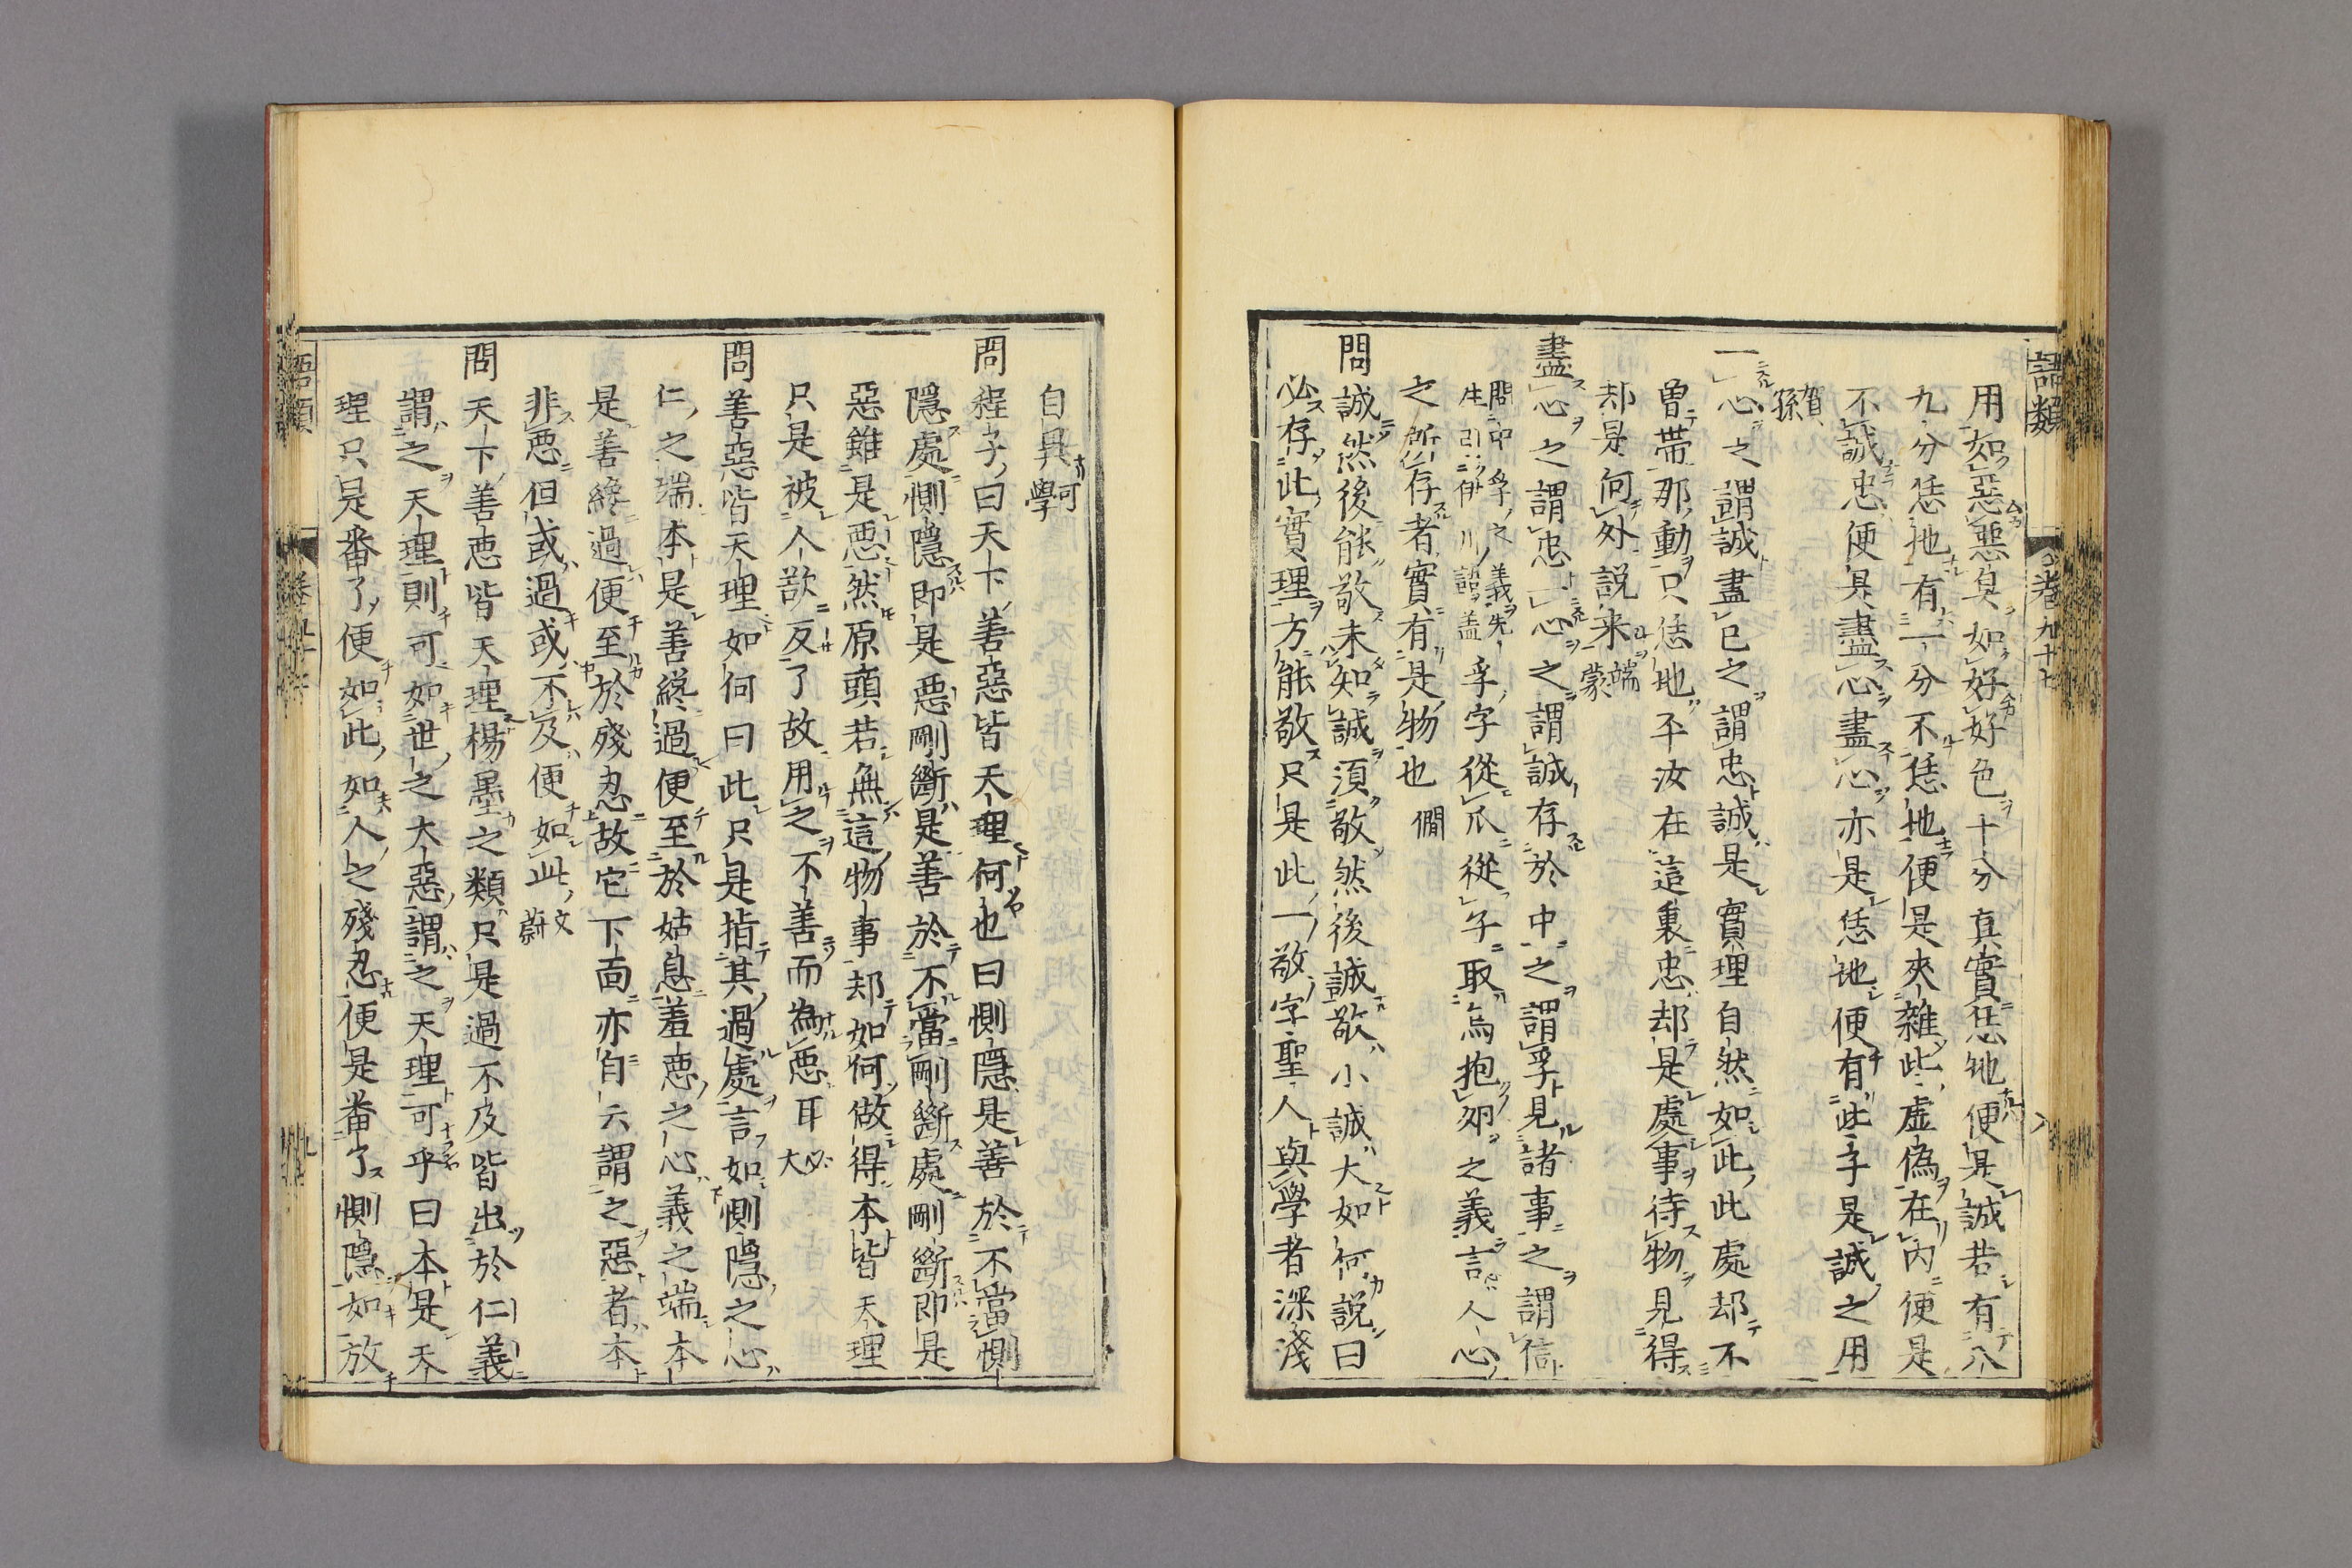 語類 卷九十七 八
用如惡惡臭如好好色十分真實恁地便是誠若有八
九分恁地有一分不恁地便是夾雜此虛偽在內便是
不誠忠便是盡心盡心亦是恁地便有此子是誠之用
賀孫
一心之謂誠盡已之謂忠誠是實理自然如此此處却不
曾帶那動只恁地平汝在這裏忠却是處事待物見得
却是向外說来 端蒙
盡心之謂忠一心之謂誠存於中之謂孚見諸事之謂信
問中孚之義先生引伊川謂蓋孚字從爪從子取鳥抱夘之義言人心
之所存者實有是物也 僩
問誠然後能敬未知誠湏敬然後誠敬小誠大如何說曰
必存此實理方能敬只是此一敬字聖人與學者深淺
自異 可學
問程子曰天下善惡皆天理何也曰惻隱是善於不當惻
隱處惻隱即是惡剛斷是善於不當剛斷處剛斷即是
惡雖是惡然原頭若無這物事却如何做得本皆天理
只是被人欲反了故用之不善而為惡耳 必大
問善惡皆天理如何曰此只是指其過處言如惻隱之心
仁之端本是善終過便至於姑息羞惡之心義之端本
是善終過便至於殘忍故它下面亦自云謂之惡者本
非惡但或過或不及便如此 文蔚
問天下善惡皆天理楊墨之類只是過不及皆出於仁義
謂之天理則可如世之大惡謂之天理可乎曰本是天
理只是番了便如此如人之殘忍便是番了惻隱如放
語類 九